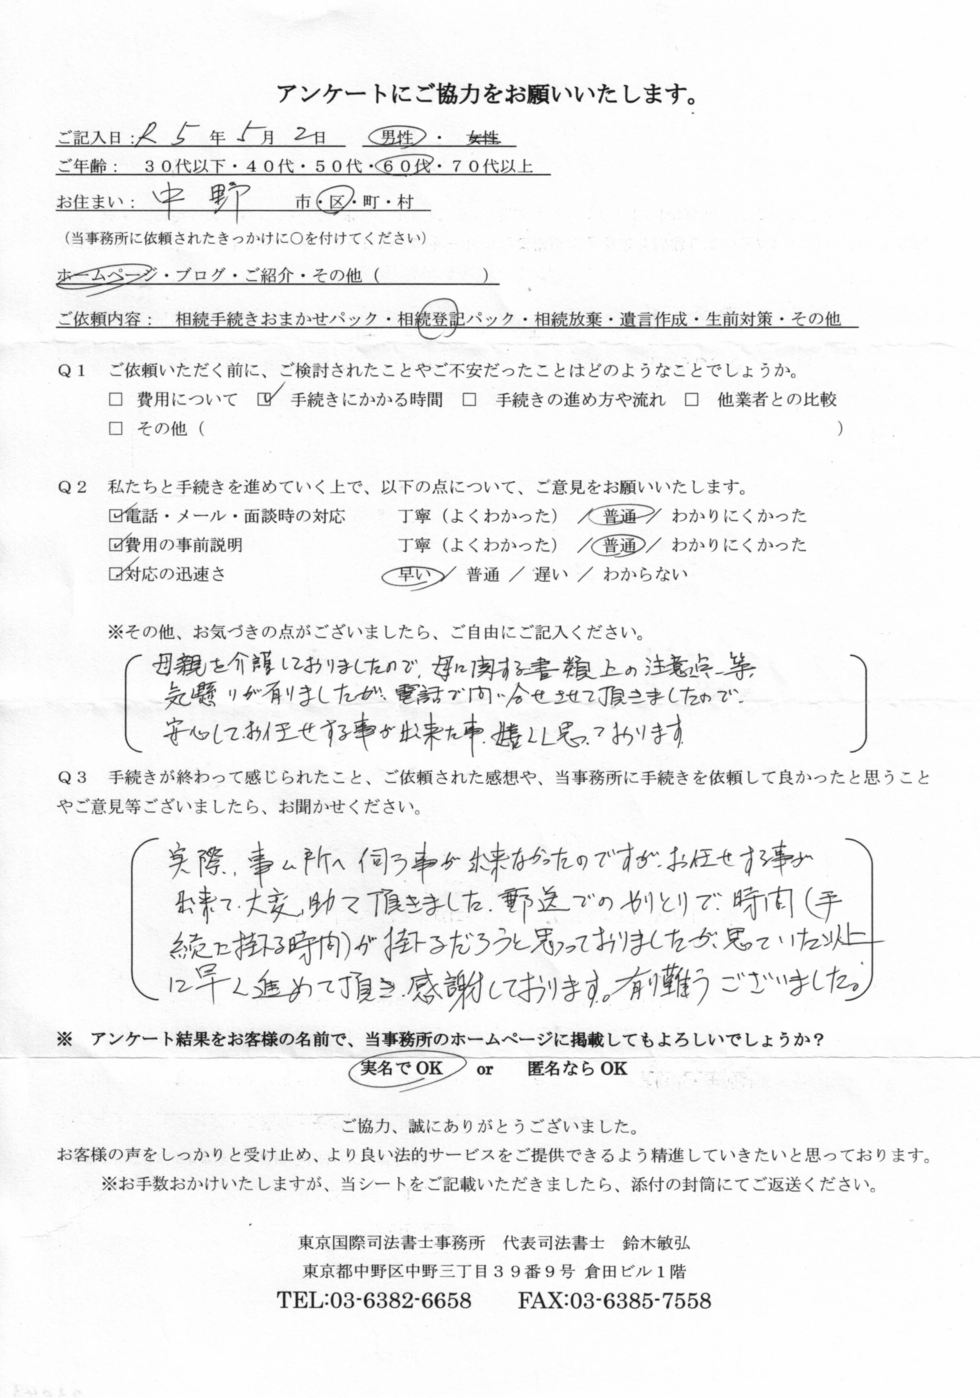 アンケートにご協力をお願いいたします。
ご記入日：R 5 年 5 月 2 日　男性 ・ 女性
ご年齢：　３０代以下・４０代・５０代・６０代・７０代以上
お住まい：　中野　市・区・町・村
（当事務所に依頼されたきっかけに○を付けてください）
ホームページ・ブログ・ご紹介・その他（　　　　　　）
ご依頼内容：　相続手続きおまかせパック・相続登記パック・相続放棄・遺言作成・生前対策・その他
Ｑ１　ご依頼いただく前に、ご検討されたことやご不安だったことはどのようなことでしょうか。
□　費用について　☑　手続きにかかる時間　□　手続きの進め方や流れ　□　他業者との比較
□　その他（　　　　　　　　　　　　　　　　　　　　）
Ｑ２　私たちと手続きを進めていく上で、以下の点について、ご意見をお願いいたします。
☑電話・メール・面談時の対応　　　丁寧（よくわかった）　／　普通　／　わかりにくかった
☑費用の事前説明　　　丁寧（よくわかった）　／　普通　／　わかりにくかった
☑対応の迅速さ　　　早い　／　普通　／　遅い　／　わからない
※その他、お気づきの点がございましたら、ご自由にご記入ください。
母親を介護しておりましたので、母に関する書類上の注意点等、
気懸りが有りましたが、電話で問い合せさせて頂きましたので、
安心してお任せする事が出来た事、嬉しく思っております
Ｑ３　手続きが終わって感じられたこと、ご依頼された感想や、当事務所に手続きを依頼して良かったと思うこと
やご意見等ございましたら、お聞かせください。
実際、事ム所へ伺う事が出来なかったのですが、お任せする事が
出来て、大変、助て頂きました。郵送でのやりとりで、時間（手
続に掛る時間）が掛るだろうと思っておりましたが、思っていた以上
に早く進めて頂き、感謝しております。有難うございました。
※　アンケート結果をお客様の名前で、当事務所のホームページに掲載してもよろしいでしょうか？
実名で OK　or　匿名なら OK
ご協力、誠にありがとうございました。
お客様の声をしっかりと受け止め、より良い法的サービスをご提供できるよう精進していきたいと思っております。
※お手数おかけいたしますが、当シートをご記載いただきましたら、添付の封筒にてご返送ください。
東京国際司法書士事務所　代表司法書士　鈴木敏弘
東京都中野区中野三丁目３９番９号 倉田ビル１階
TEL:03-6382-6658　　FAX:03-6385-7558